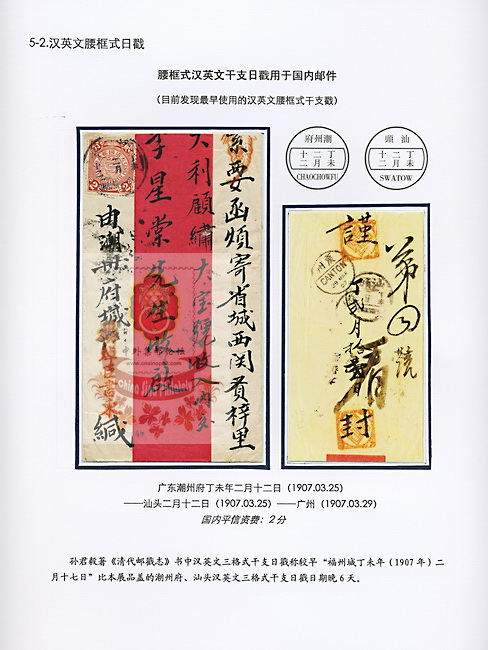 5-2.汉英文腰框式日戳
腰框式汉英文干支日戳用于国内邮件
(目前发现最早使用的汉英文腰框式干支戳)
潮州府
十二丁
二月未
CHAOCHOWFU
汕頭
十二丁
二月未
SWATOW
索要函煩寄省城西関賁梓里
大利顧繡大宝號收入內交
李星棠先生收啟
由潮州府城
緘
謹
封
第
號
廣州
CANTON
广东潮州府丁未年二月十二日(1907.03.25)
——汕头二月十二日(1907.03.25)——广州(1907.03.29)
国内平信资费:2分
孙君毅著《清代邮戳志》书中汉英文三格式干支日戳称较早“福州城丁未年(1907年)二
月十七日”比本展品盖的潮州府、汕头汉英文三格式干支日戳日期晚6天.